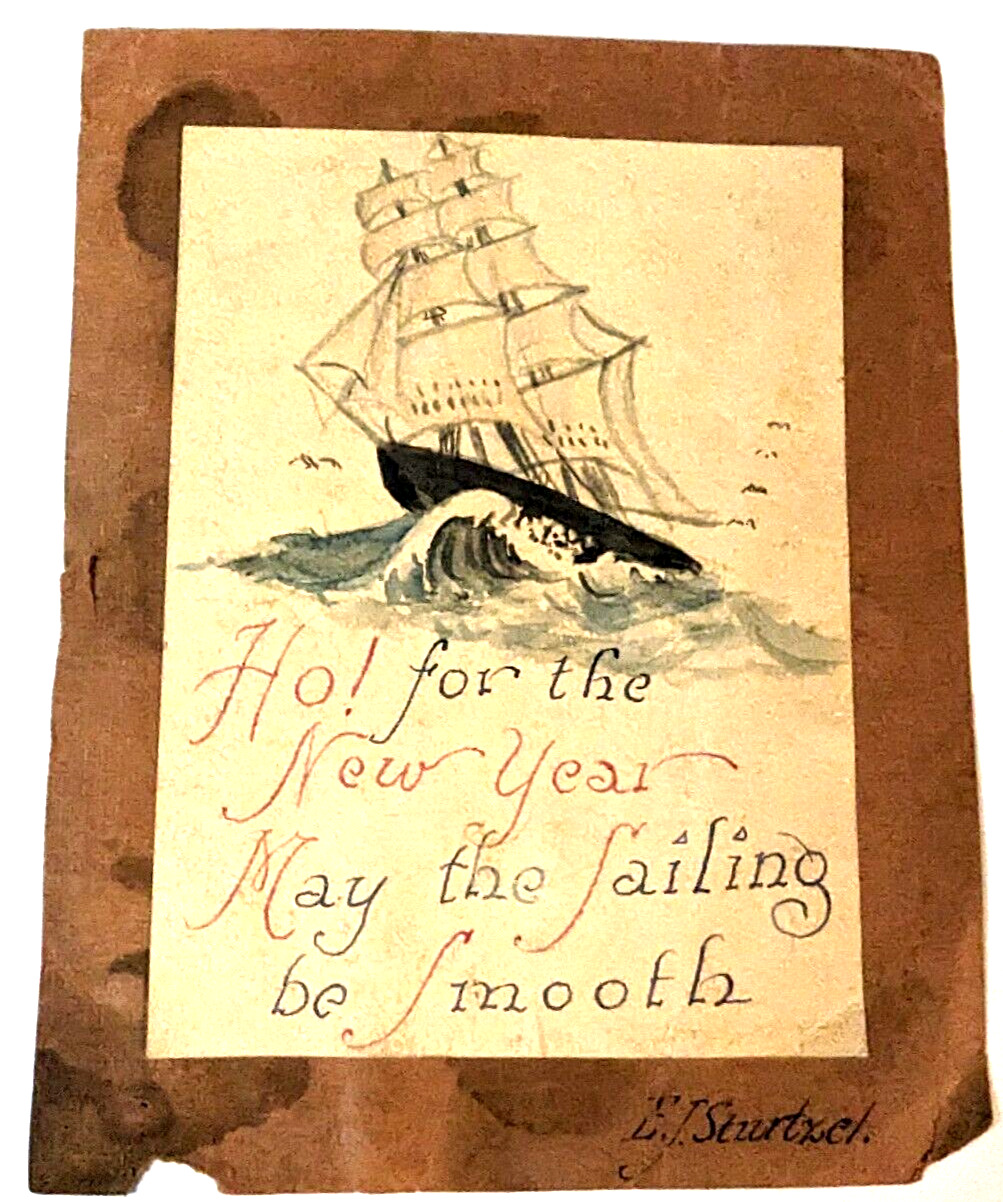 Ho! for the
New Year
May the Sailing
be Smooth
E.J. Sturtzel.